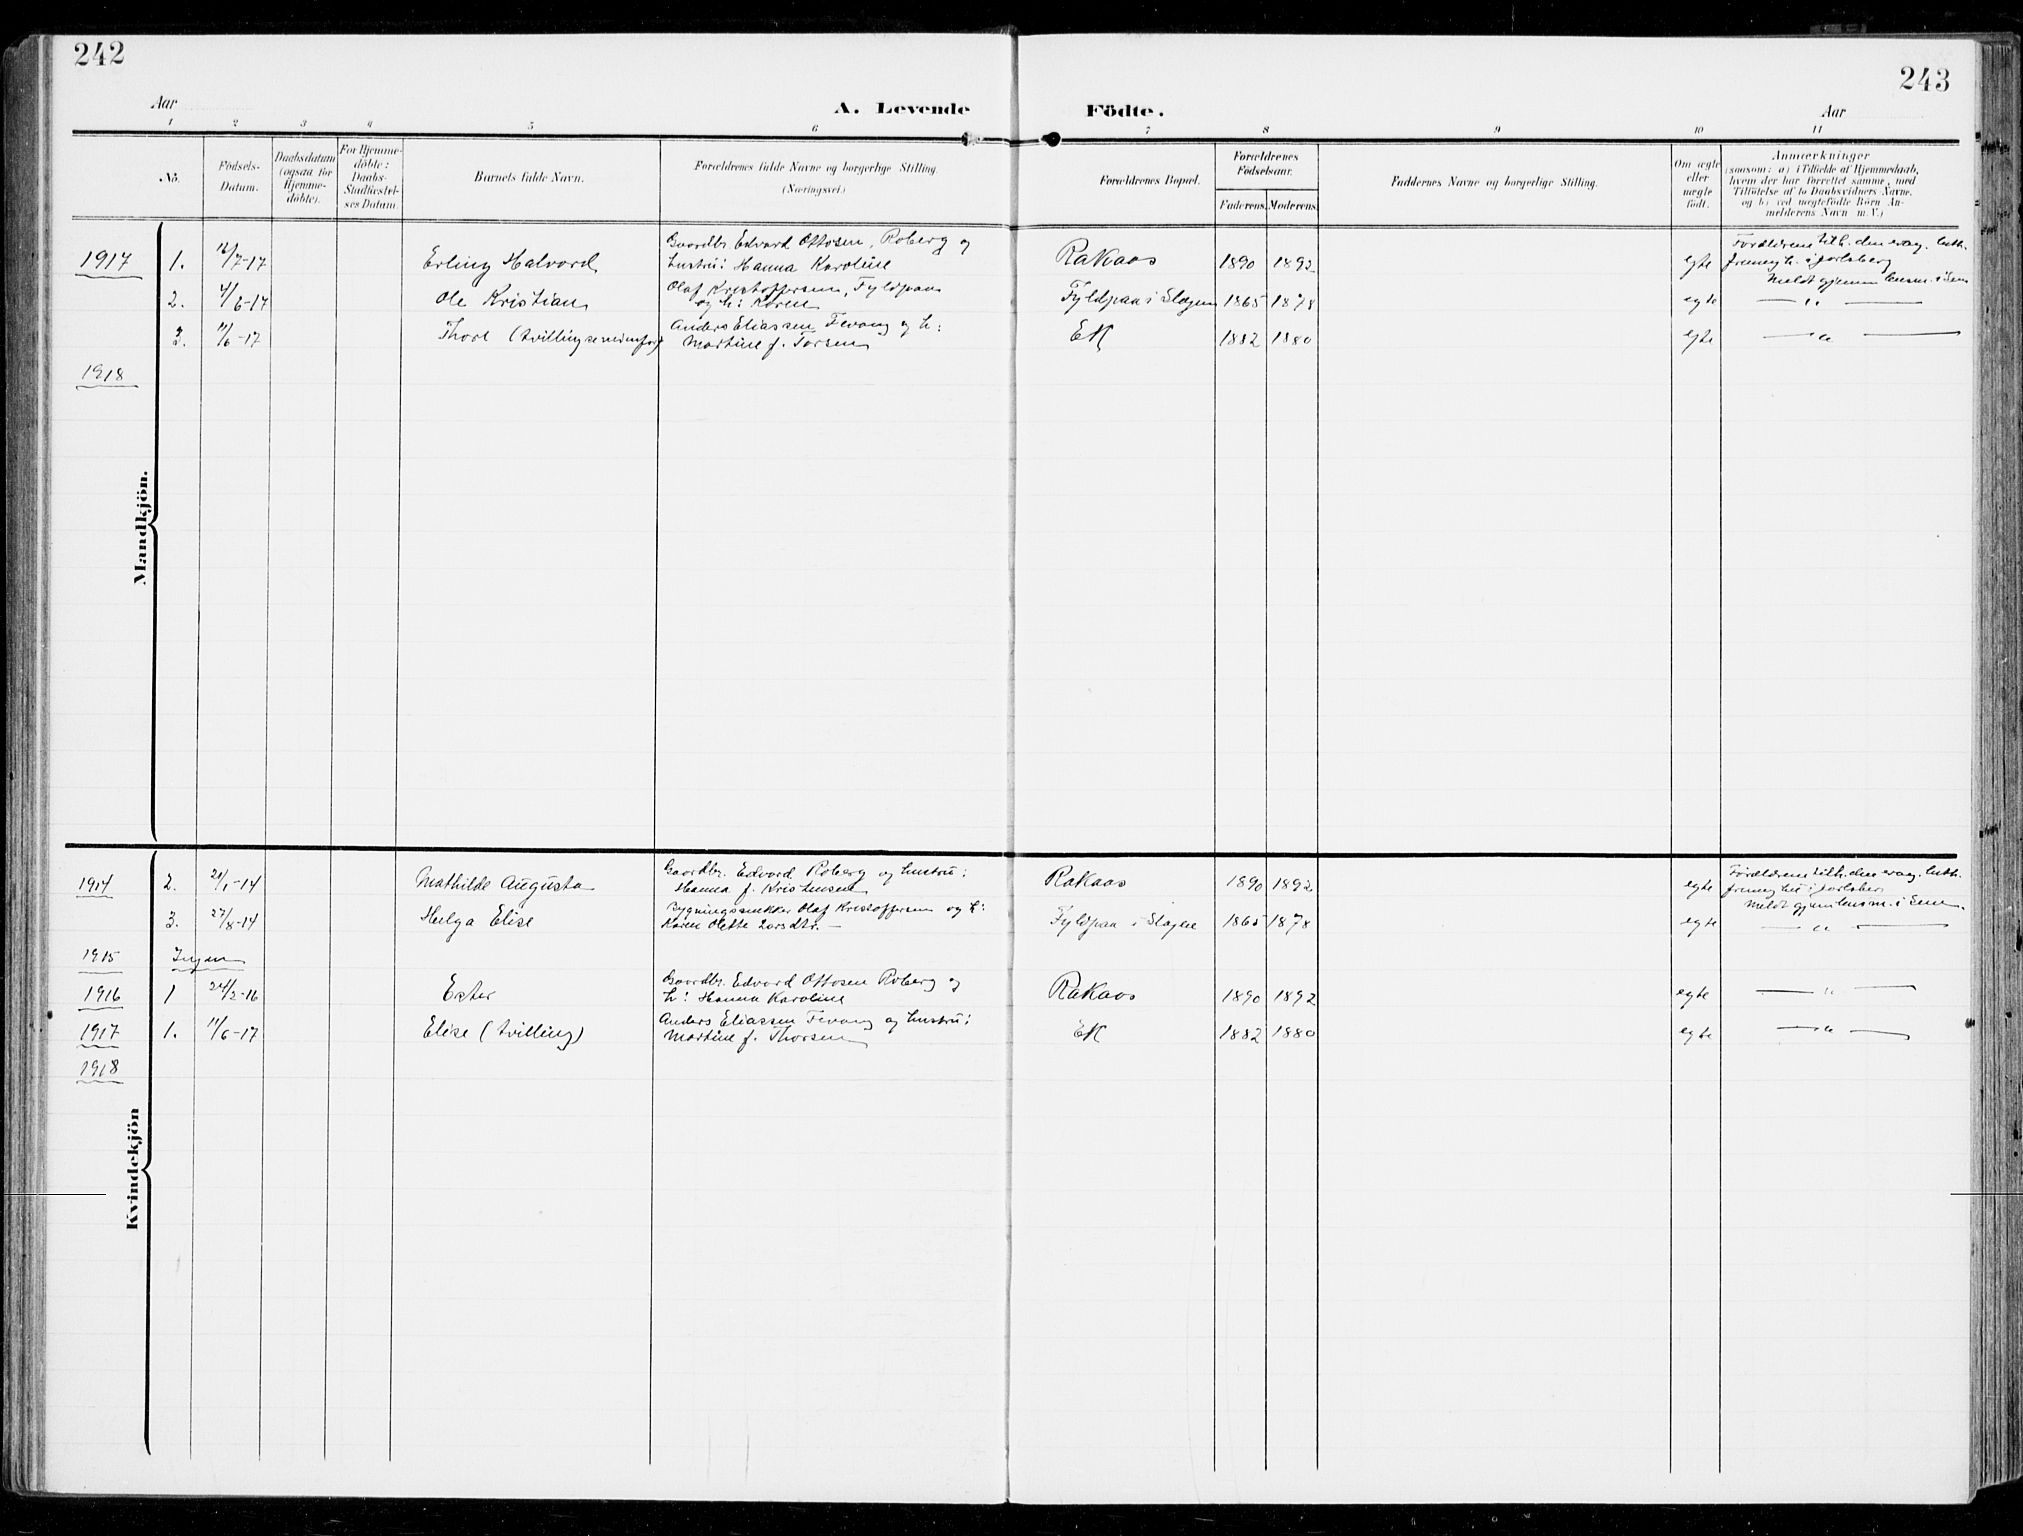 242
243
Aar
A. Levende
Födte.
Aar
1 2 3 4 5 6 7 8 9 10 11
No.
Födsels-
Datum.
Daabsdatum
(ogsaa for
Hjemme-
döbte).
For Hjemme-
döbte:
Daabs-
Stadfæstel-
ses Datum.
Barnets fulde Navn.
Forældrenes fulde Navne og borgerlige Stilling.
(Næringsvei.)
Forældrenes Bopæl.
Forældrenes
Födselsaar.
Faderens. Moderens.
Faddernes Navne og borgerlige Stilling.
Om ægte
eller
uægte
födt.
Anmærkninger
(saasom: a) i Tilfælde af Hjemmedaab,
hvem der har forrettet samme, med
Tilföielse af to Daabsvidners Navne,
og b) ved uægtefödte Börn An-
melderens Navn m. V.)
Mandkjön.
Gaardbr. Edvard Ottosen, Roberg og
Forældrene tilh. den evang. luth.
1917 1. 12/7-17 Erling Halvord hustru: Hanna Karoline Rakaas 1890 1892 egte frimenigh. i Jarlsberg
Olaf Kristoffersen, Fyldpaa
Meldt gjennem lensm. i Sem
2. 4/6-17 Ole Kristian og h: Karen Fyldpaa i Slagen 1865 1878 egte — " —
Anders Eliassen Fevang og h:
3. 11/6-17 Thorl (tvilling se nedenfor) Martine f. Torsen Ek 1882 1880 egte — " —
1918
Kvindekjön
Gaardbr. Edvard Roberg og hustru:
Forældrene tilh. den evang. luth.
1914 2. 21/1-14 Mathilde Augusta Hanna f. Kristensen Rakaas 1890 1892 egte frimenigh. i Jarlsber
Bygningssnekker Olaf Kristoffersen og h:
Meldt gjen lensm. i Sem.
3. 27/8-14 Helga Elise Karen Olette Larsdtr. — Fyldpaa i Slagen 1865 1878 egte — " —
1915 Ingen
Gaardbr. Edvard Ottosen Roberg og
1916 1 24/2-16 Ester h: Hanna Karoline Rakaas 1890 1892 egte — " —
Anders Eliassen Fevang og hustru:
1917 1. 11/6-17 Elise (tvilling) Martine f. Thorsen Ek 1882 1880 egte — " —
1918